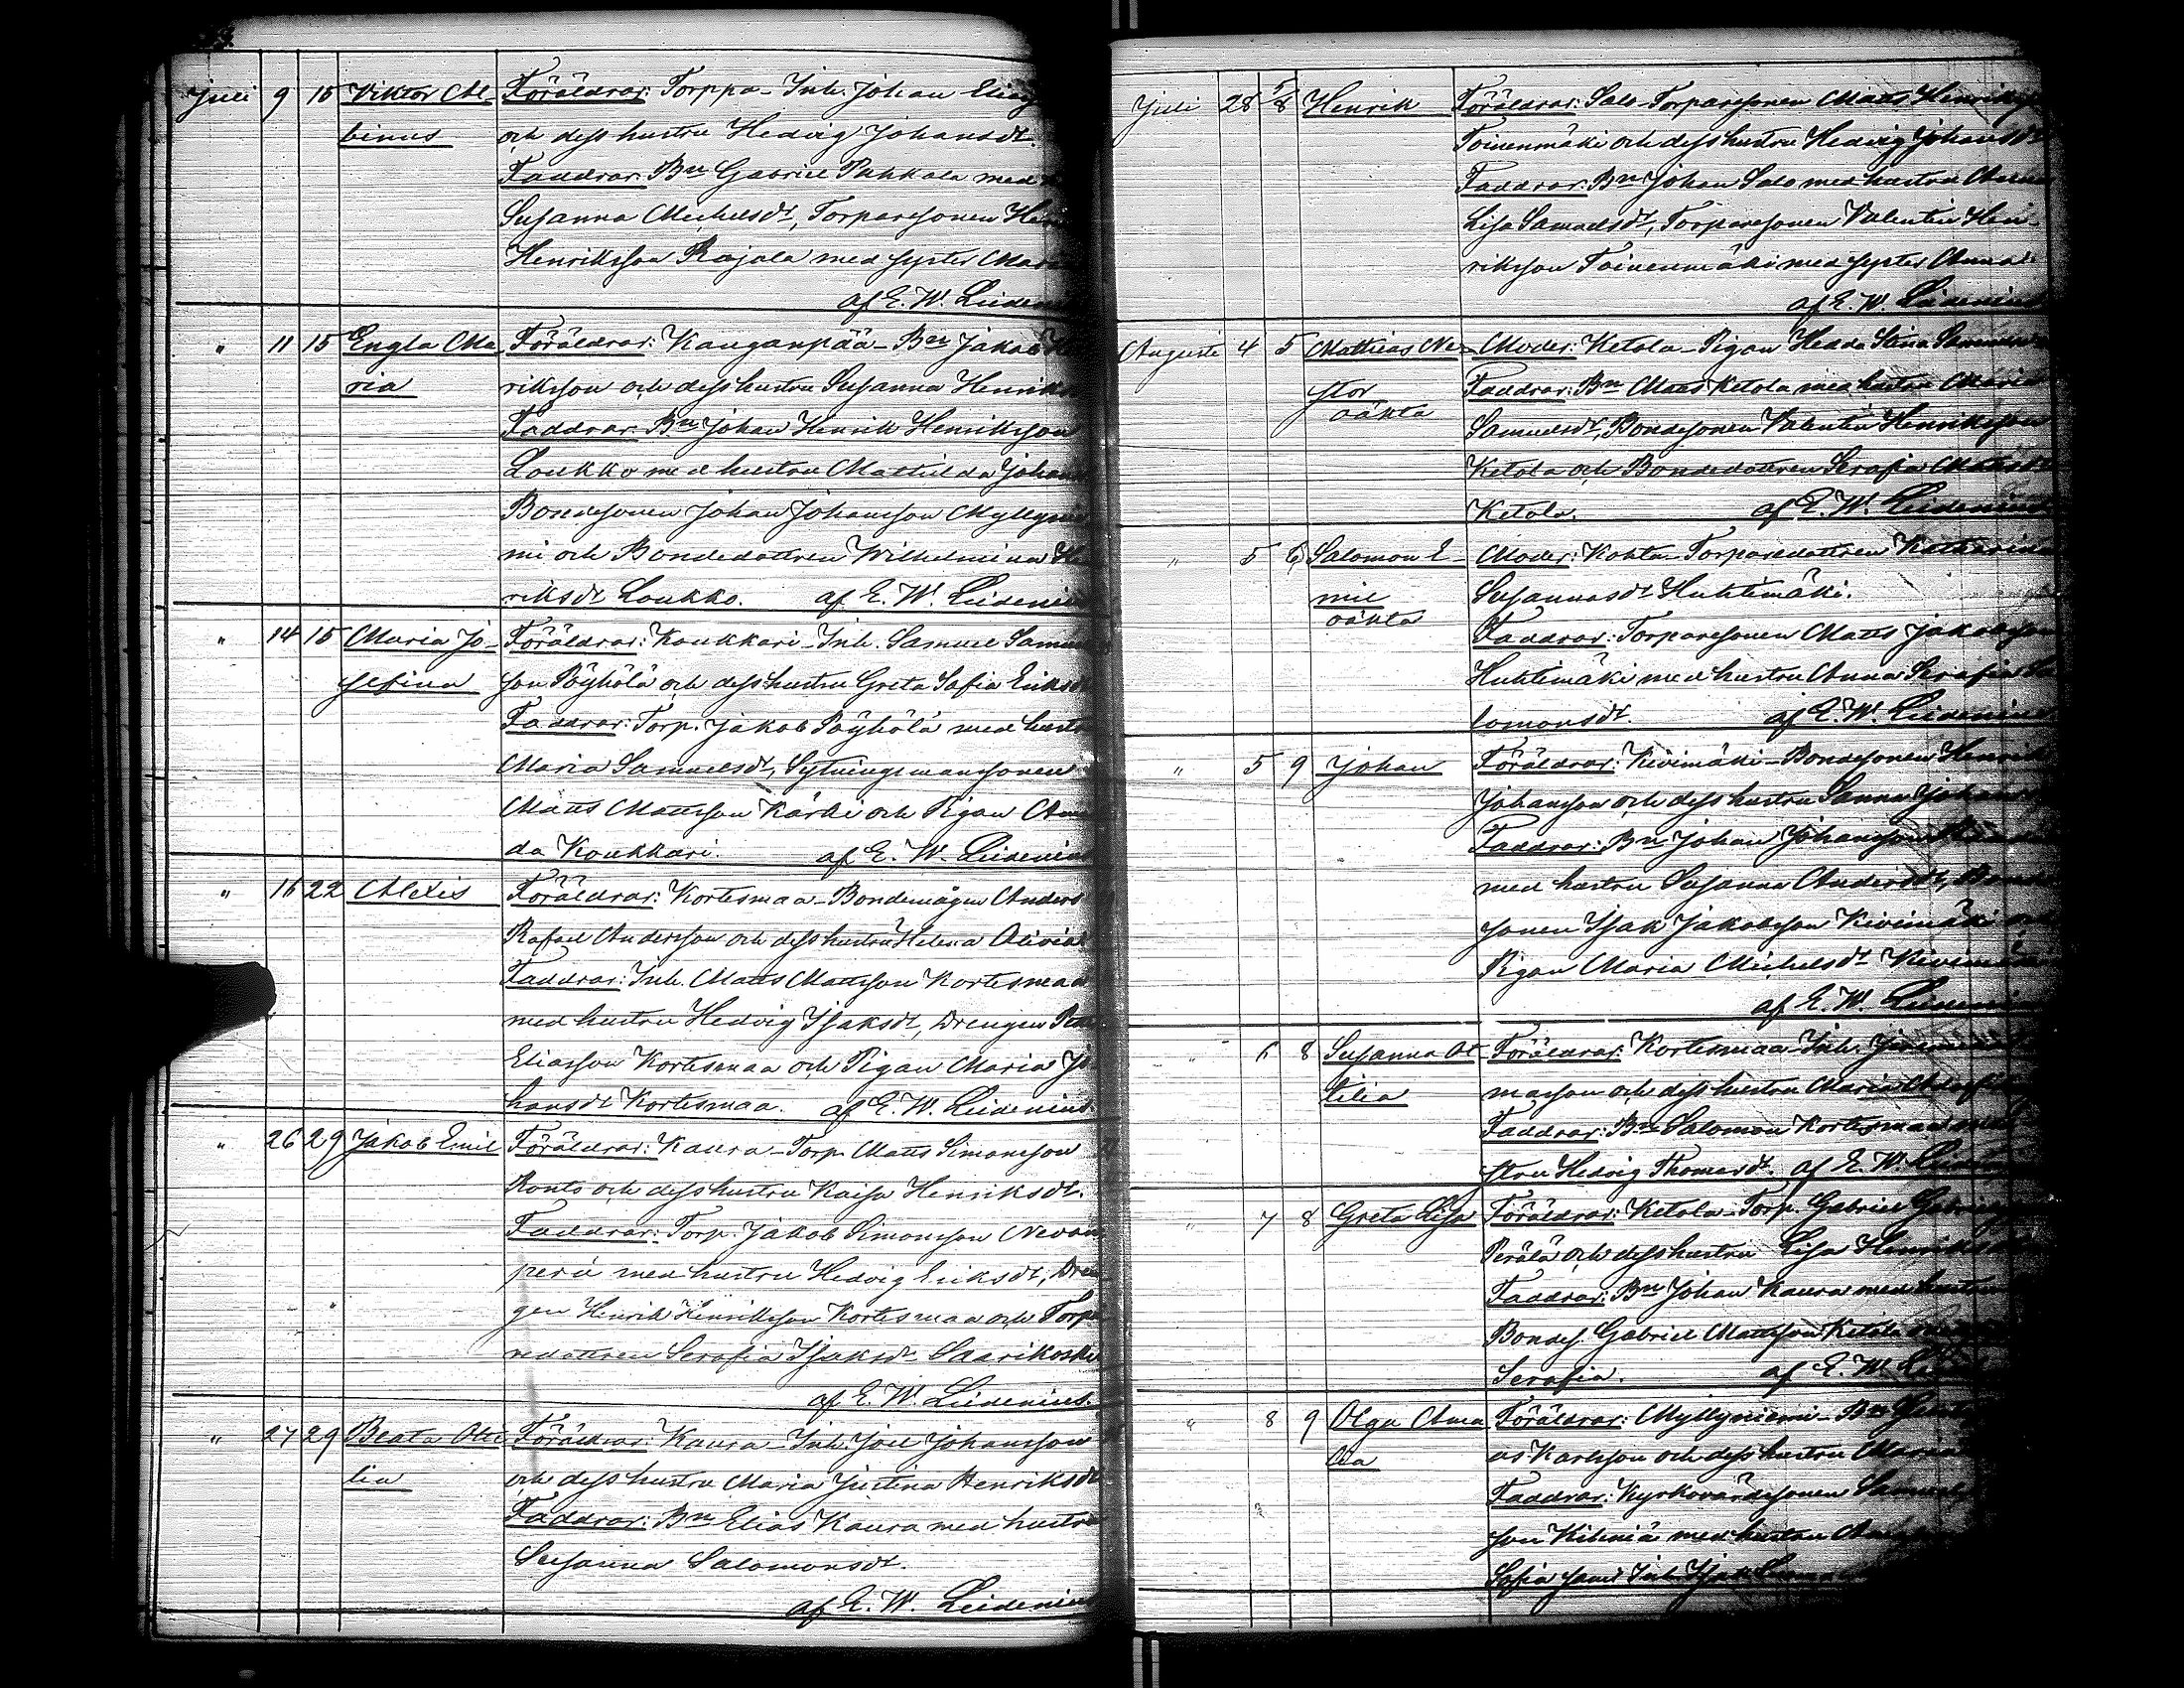 Juli 9 15 Viktor Al- Föräldrar: Torppa-Inh. Johan Elias
binus och dess hustru Hedvig Johansdr.
Faddrar: Bn Gabriel Pukkala med
Susanna Michelsdr, Torparesonen
Henriksson Rajala med syster Maria
af E. W. Lidenius
" 11 15 Engla Ma- Föräldrar: Kauganpää-Bn Jakob
ria riksson och dess hustru Susanna Henriks
Faddrar: Bn Johan Henrik Henriksson
Loukko med hustru Mathilda Johans
Bondesonen Johan Johansson Myllynie
mi och Bondedottren Wilhelmina
riksdr Loukko. af E. W. Lidenius
" 14 15 Maria Jo- Föräldrar: Koukkari-Inh. Samuel Samuel
sefina son Pöyhölä och dess hustru Greta Sofia Eriksdr
Faddrar: Torp. Jakob Pöyhölä med hustru
Maria Samuelsdr, Sytningsmanssonen
Matts Mattsson Kärki och Pigan Aman
da Koukkari. af E. W. Lidenius
" 16 22 Alexis Föräldrar: Kortesmaa-Bondemågen Anders
Rafael Andersson och dess hustru Helena Olivia
Faddrar: Inh. Matts Mattsson Kortesmaa
med hustru Hedvig Isaksdr, Drengen
Eliasson Kortesmaa och Pigan Maria Jo
hansdr Kortesmaa. af E. W. Lidenius.
" 26 29 Jakob Emil Föräldrar: Kaura-Torp. Matts Simonsson
Ronto och dess hustru Kaisa Henriksdr.
Faddrar: Torp. Jakob Simonsson Nevan
perä med hustru Hedvig Eriksdr, Dren
gen Henrik Henriksson Kortesmaa och Torpa
redottren Serafia Isaksdr Saarikoski
af E. W. Lidenius.
" 27 29 Beata Oti Föräldrar: Kaura-Inh. Joel Johansson
lia och dess hustru Maria Justina Henriksdr
Faddrar: Bn Elias Kaura med hustru
Susanna Salomonsdr.
af E. W. Lidenius
Juli 28 5/8 Henrik Föräldrar: Salo-Torparesonen Matts Henriksson
Toinenmäki och dess hustru Hedvig Johansdr
Faddrar: Bn Johan Salo med hustru Maria
Lisa Samuelsdr, Torparesonen Valentin Hen-
riksson Toinenmäki med syster Anna.
af E. W. Lidenius
Augusti 4 5 Mathias Ne- Moder: Ketola-Pigan Hedda Stina Samuelsdr
stor Faddrar: Bn Matts Ketola med hustru Maria
oäkta Samuelsdr, Bondesonen Valentin Henriksson
Ketola och Bondedottren Serafia Mattsdr
Ketola. af E. W. Lidenius
" 5 6 Salomon E- Moder: Kohta-Torparedottren Katharina
mil Susannasdr Huhtimäki.
oäkta Faddrar: Torparesonen Matts Jakobsson
Huhtimäki med hustru Anna Serafia Sa
lomonsdr. af E. W. Lidenius
" 5 9 Johan Föräldrar: Kivimäki-Bondesonen Henrik
Johansson och dess hustru Sanna Johansdr
Faddrar: Bn Johan Johansson
med hustru Susanna Andersdr, Bonde
sonen Isak Jakobsson Kivimäki och
Pigan Maria Michelsdr Kivimäki
af E. W. Lidenius
" 6 8 Susanna Ot- Föräldrar: Kortesmaa-Inh.
tilia masson och dess hustru Maria
Faddrar: Bn Salomon Kortesmaa med
stru Hedvig Thomasdr. af E. W.
" 7 8 Greta Lisa Föräldrar: Ketola-Torp. Gabriel Gabriels
Perälä och dess hustru Lisa Henriks
Faddrar: Bn Johan Kaura med hustru
Bondes. Gabriel Mattsson Ketola
Serafia. af E. W.
" 8 9 Olga Ama Föräldrar: Myllyniemi-Bn
lia as Karlsson och dess hustru Maria
Faddrar: Kyrkovärdesonen Samuel
son Kihniä med hustru
Sofia samt Inh. Isak